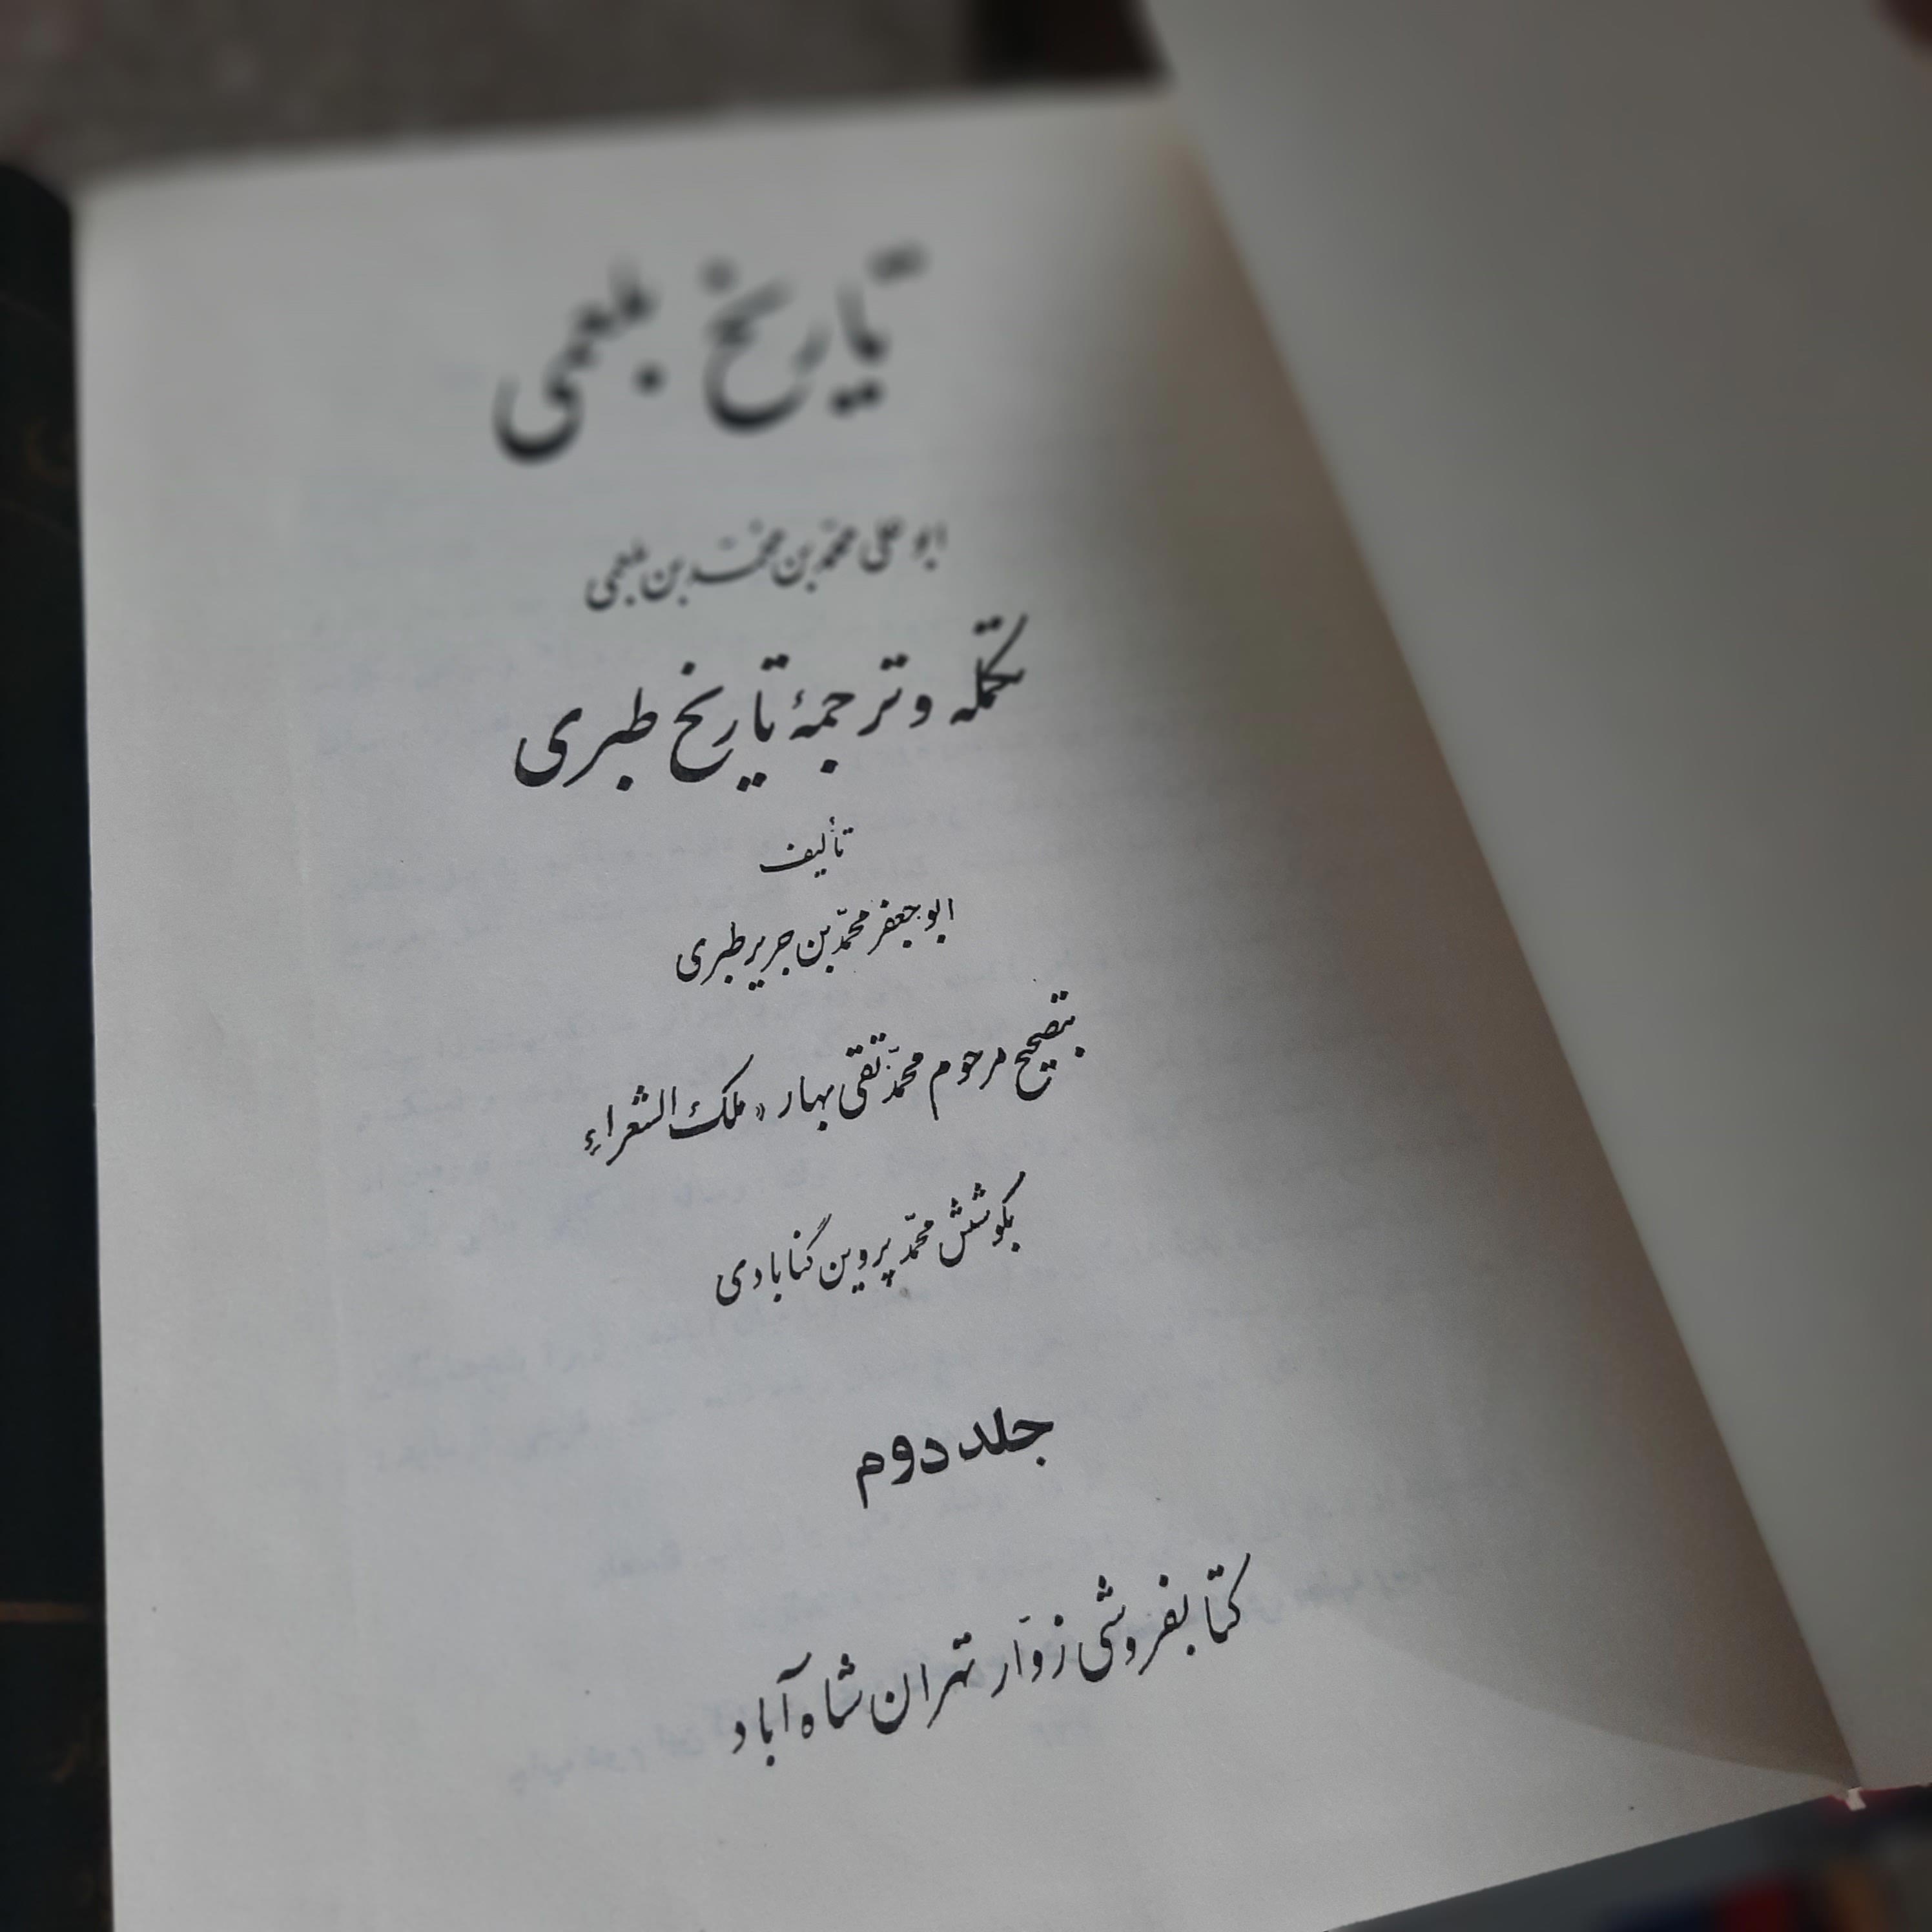 تاریخ بلعمی
ابو علی محمّد بن محمّد بن بلعمی
تکمله و ترجمهٔ تاریخ طبری
تألیف
ابو جعفر محمّد بن جریر طبری
بتصحیح مرحوم محمّد تقی بهار «ملک الشعراء»
بکوشش محمّد پروین گنابادی
جلد دوم
کتابفروشی زوّار تهران شاه آباد